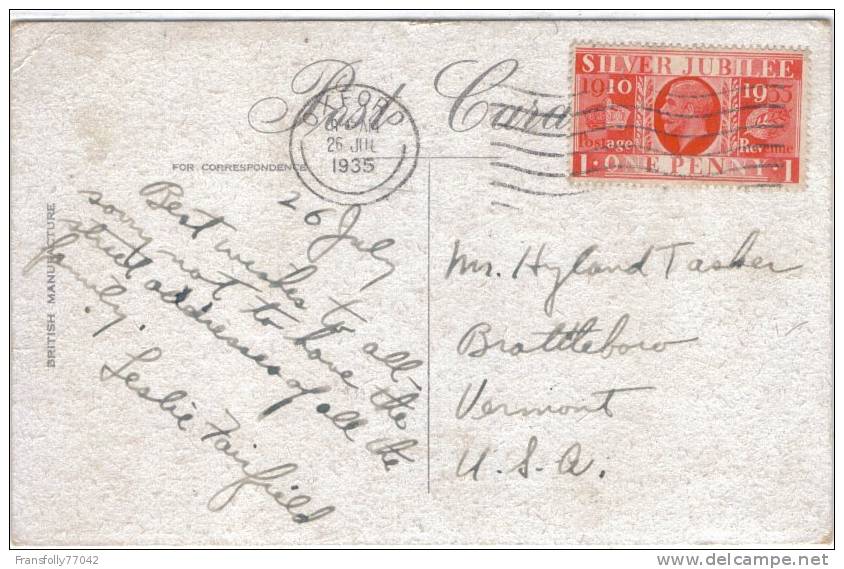 Post Card
FOR CORRESPONDENCE
BRITISH MANUFACTURE
OXFORD
26 JUL
1935
SILVER JUBILEE
1910 1935
Postage Revenue
1 · ONE PENNY · 1
26 July
Best wishes to all,
sorry not to have the
street addresses of all the
family.
Leslie Fairfield
Mr. Hyland Tasker
Brattleboro
Vermont
U.S.A.
Fransfolly77042
www.delcampe.net